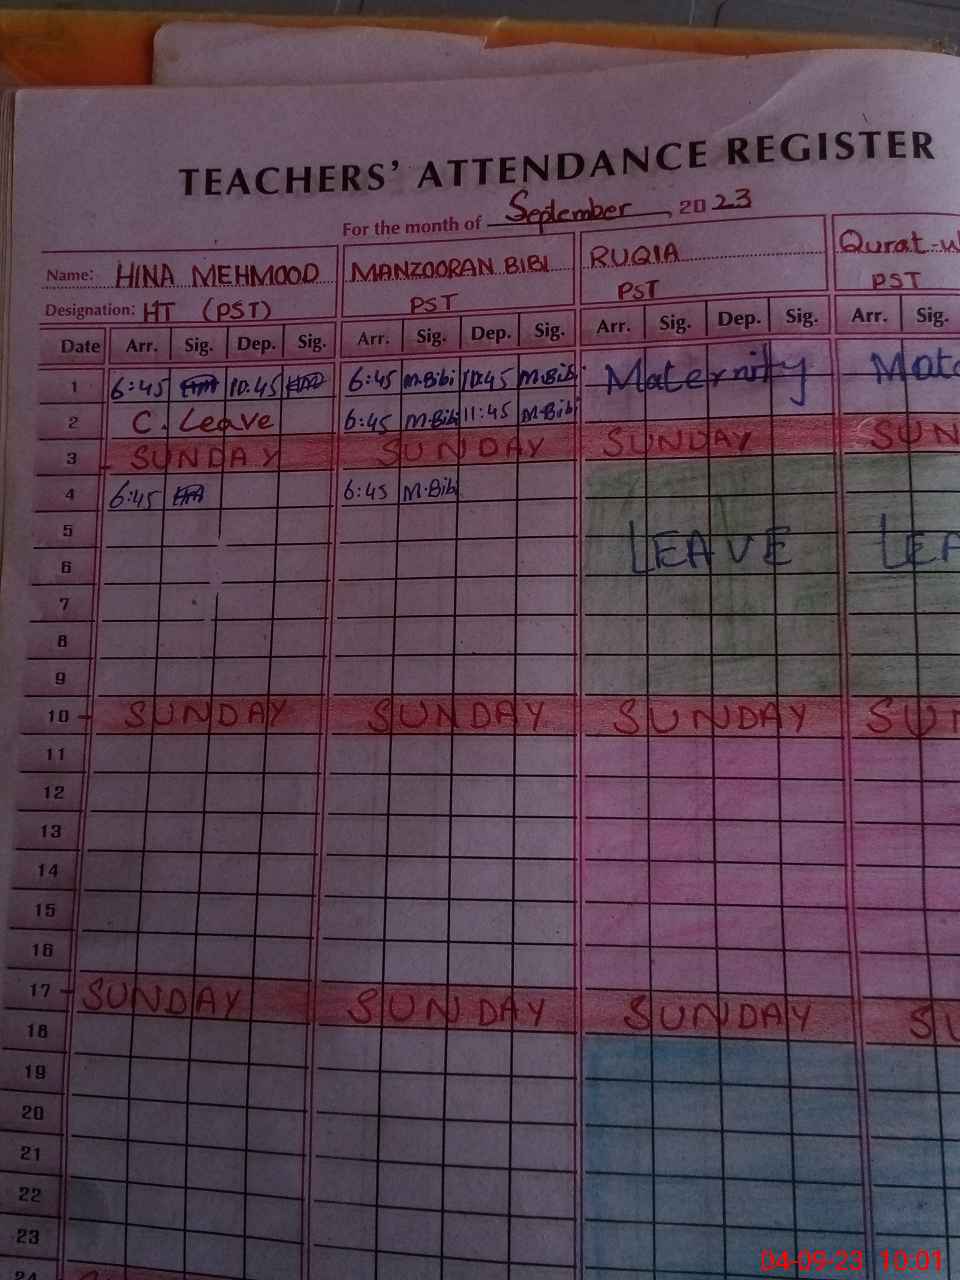 TEACHERS' ATTENDANCE REGISTER
For the month of September, 2023
Name: HINA MEHMOOD MANZOORAN BIBI RUQIA Qurat-ul
Designation: HT (PST) PST PST PST
Date Arr. Sig. Dep. Sig. Arr. Sig. Dep. Sig. Arr. Sig. Dep. Sig. Arr. Sig.
1 6:45 10:45 6:45 M.Bibi 10:45 M.Bibi Maternity Mate
2 C. Leave 6:45 M.Bibi 11:45 M.Bibi
3 SUNDAY SUNDAY SUNDAY SUN
4 6:45 6:45 M.Bibi
5
6 LEAVE LEA
7
8
9
10 SUNDAY SUNDAY SUNDAY SUN
11
12
13
14
15
16
17 SUNDAY SUNDAY SUNDAY SU
18
19
20
21
22
23
24
04-09-23 10:01